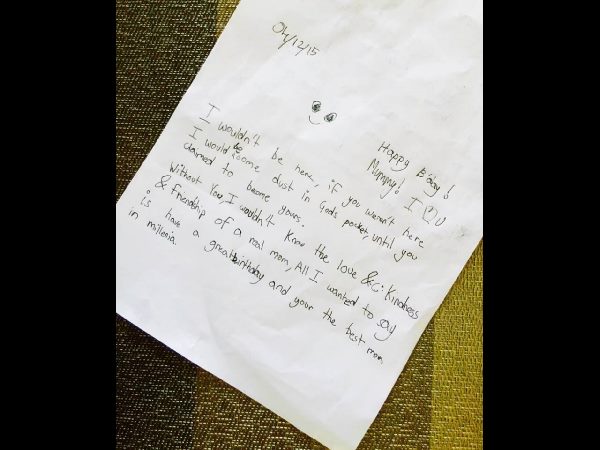 04/12/15
Happy B'day!
Mummy! I U
I wouldn't be here, if you weren't here
I would be some dust in Gods pocket, until you
claimed to become yours.
Without You, I wouldn't know the love & Kindness
& friendship of a real mom, All I wanted to say
is have a great birthday and your the best mom
in millenia.